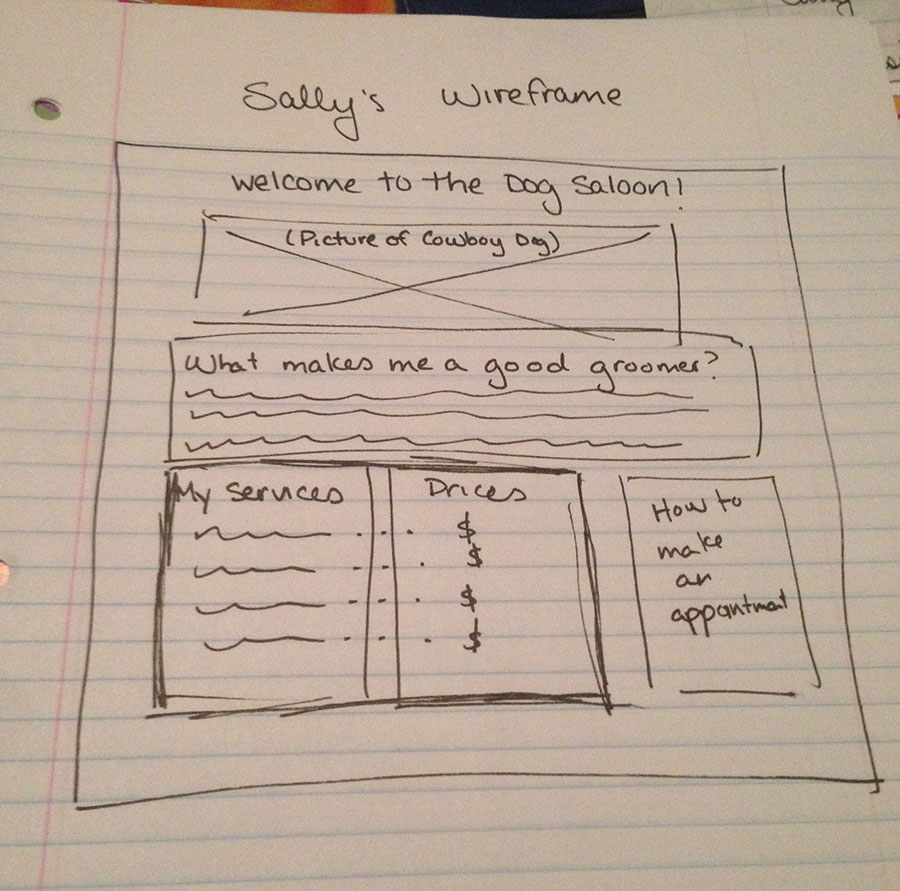 Sally's Wireframe
Welcome to the Dog Saloon!
(Picture of Cowboy Dog)
What makes me a good groomer?
My Services
Prices
$
$
$
$
How to
make
an
appointment